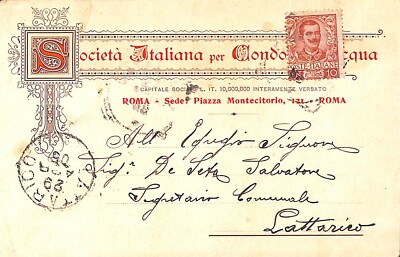 Società Italiana per Condotte d'Acqua
POSTE ITALIANE
10
CAPITALE SOCIALE L. IT. 10,000,000 INTERAMENTE VERSATO
ROMA - Sede: Piazza Montecitorio, 121 - ROMA
All' Egregio Signore
Sig. De Seta Salvatore
Segretario Comunale
Lattarico
LATTARICO
29